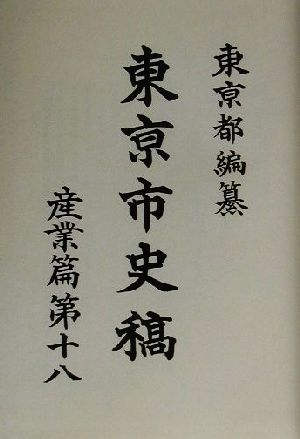 東京都編纂
東京市史稿
産業篇第十八